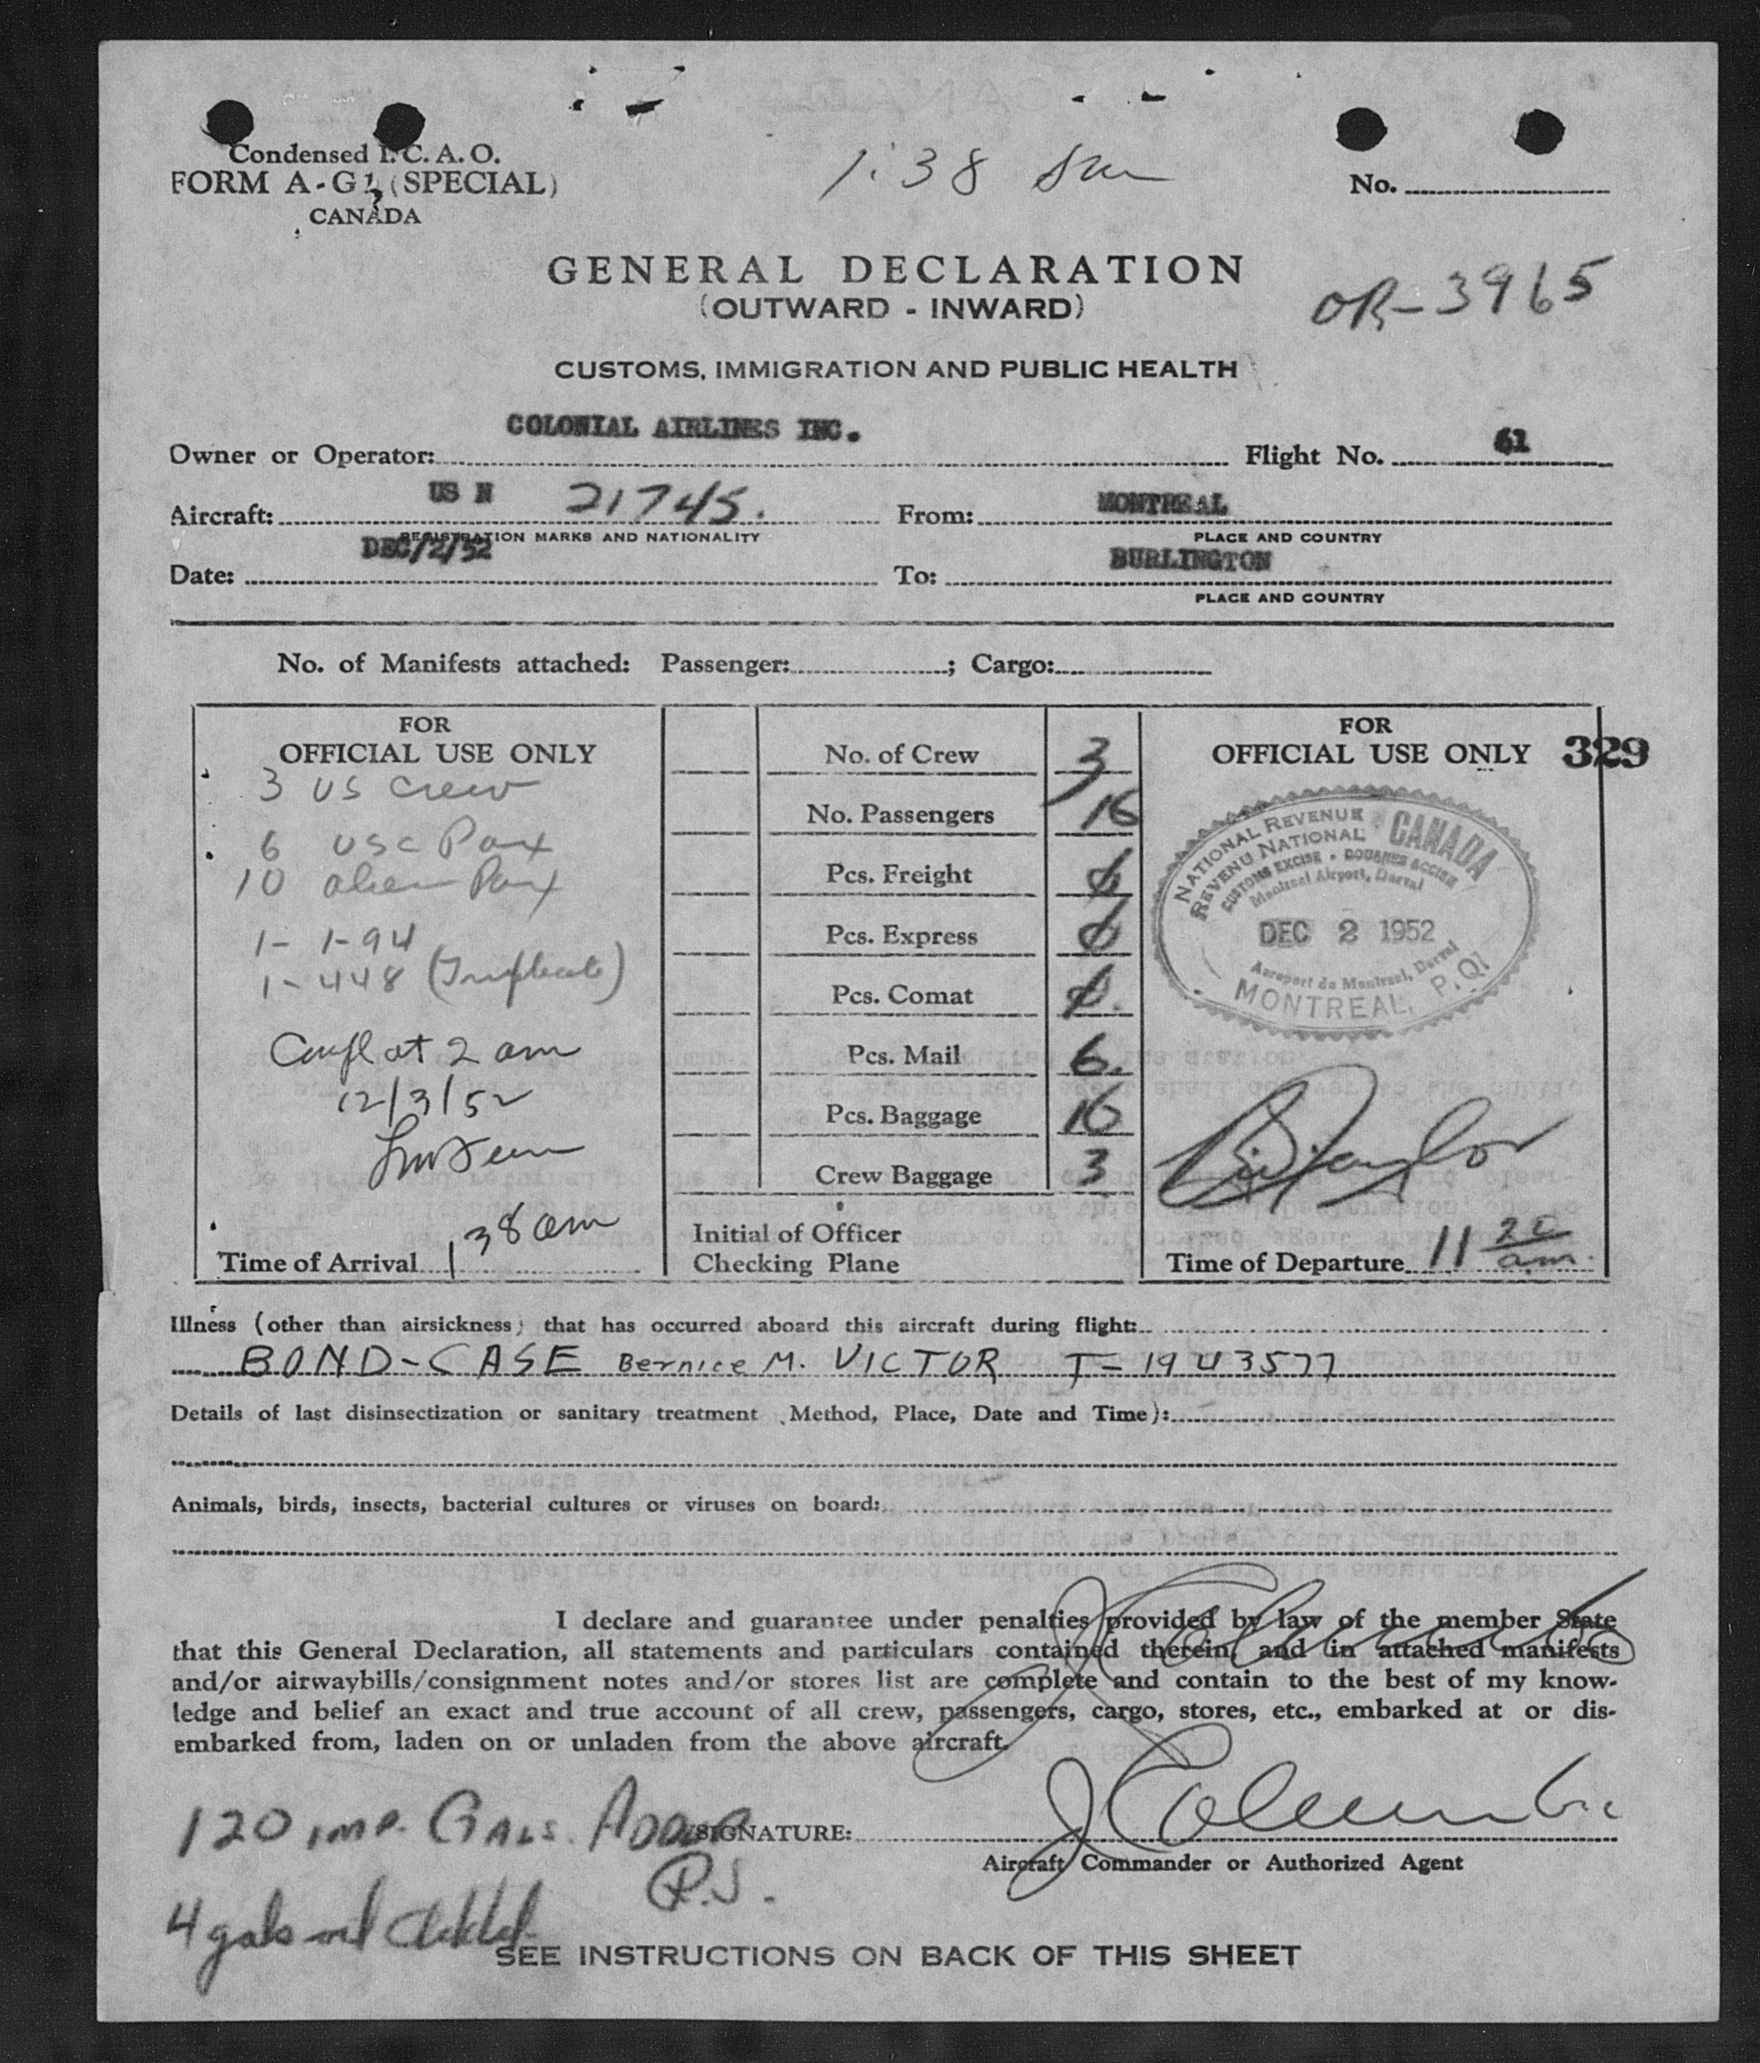 Condensed I.C.A.O.
FORM A-G 1/2 (SPECIAL)
CANADA
1:38 am
No.
GENERAL DECLARATION
(OUTWARD - INWARD)
OR-3965
CUSTOMS, IMMIGRATION AND PUBLIC HEALTH
COLONIAL AIRLINES INC.
Owner or Operator: Flight No. 61
Aircraft: US N 21745. From: MONTREAL
REGISTRATION MARKS AND NATIONALITY PLACE AND COUNTRY
Date: DEC/2/52 To: BURLINGTON
PLACE AND COUNTRY
No. of Manifests attached: Passenger: ; Cargo:
FOR
OFFICIAL USE ONLY
3 US crew
6 USC Pax
10 alien Pax
1- 1-94
1-448 (Triplicate)
at 2 am
12/3/52
Time of Arrival 1 38 am
No. of Crew 3
No. Passengers 16
Pcs. Freight 0
Pcs. Express 0
Pcs. Comat 0.
Pcs. Mail 6.
Pcs. Baggage 16
Crew Baggage 3
Initial of Officer
Checking Plane
FOR
OFFICIAL USE ONLY 329
NATIONAL REVENUE CANADA
REVENU NATIONAL
CUSTOMS EXCISE • DOUANES ACCISE
Montreal Airport, Dorval
DEC 2 1952
Aeroport de Montreal, Dorval
MONTREAL, P.Q.
Taylor
Time of Departure 11 20 am.
Illness (other than airsickness) that has occurred aboard this aircraft during flight:
BOND-CASE Bernice M. VICTOR T-1943577
Details of last disinsectization or sanitary treatment (Method, Place, Date and Time):
Animals, birds, insects, bacterial cultures or viruses on board:
I declare and guarantee under penalties provided by law of the member State
that this General Declaration, all statements and particulars contained therein, and in attached manifests
and/or airwaybills/consignment notes and/or stores list are complete and contain to the best of my know-
ledge and belief an exact and true account of all crew, passengers, cargo, stores, etc., embarked at or dis-
embarked from, laden on or unladen from the above aircraft.
120 IMP. GALS. ADDED
SIGNATURE:
Aircraft Commander or Authorized Agent
R.J.
4 gals oil added
SEE INSTRUCTIONS ON BACK OF THIS SHEET